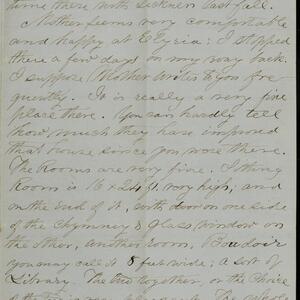 time there with sickness last fall.
Mother seems very comfortable
and happy at Elyria; I stopped
there a few days on my way back.
I suppose Mother writes to you fre-
quently. It is really a very fine
place there. You can hardly tell
how much they have improved
that house since you were there.
The Rooms are very fine. 1 thing
Room is 16 x 24 ft. very high; and
on the end of it, with door on one side
of the chymney & glass window on
the other, another room, Boudoir
you may call it 8 feet wide; a sort of
Library. The two together, or the choice